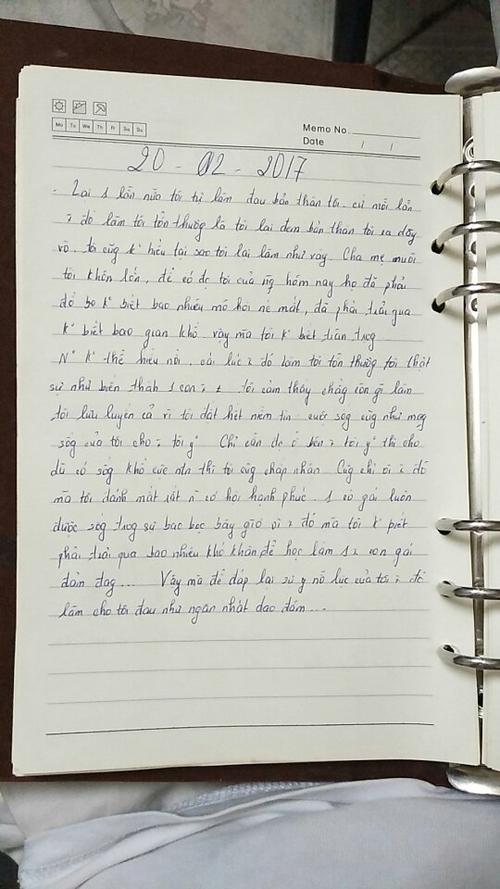 Mo Tu We Th Fr Sa Su
Memo No.
Date / /
20 - 02 - 2017
- Lại 1 lần nữa tôi tự làm đau bản thân tôi. cứ mỗi lần
i đó làm tôi tổn thường là tôi lại đem bản thân tôi ra dày
vò. tôi cũg k° hiểu tại sao tôi lại làm như vậy. Cha mẹ nuôi
tôi khôn lớn, để có đc tôi của ng̃ hôm nay họ đã phải
đổ bo k° biết bao nhiêu mồ hôi nc mắt, đã phải trải qua
k° biết bao gian khổ. vậy mà tôi k° biết trân trog
N° k° thể hiểu nổi. cái lúc i đó làm tôi tổn thường tôi thật
sự như biến thàh 1 con i ≠. tôi cảm thấy chẳg còn gì làm
tôi lưu luyến cả vì tôi đặt hết niềm tin cuộc sog cũg như mạg
sốg của tôi cho i tôi y°. Chỉ cần đc ở bên i tôi y° thì cho
dù có sốg khổ cực ntn thì tôi cũg chấp nhận. Cũg chỉ vì i đó
mà tôi đánh mất rất n` cơ hội hạnh phúc. 1 cô gái luôn
được sốg trog sự bao bọc bây giờ vì i đó mà tôi k° biết
phải trải qua bao nhiêu khó khăn để học làm 1 i con gái
đảm đag... Vậy mà để đáp lại sự nỗ lực của tôi i đó
làm cho tôi đau như ngàn nhát dao đâm...